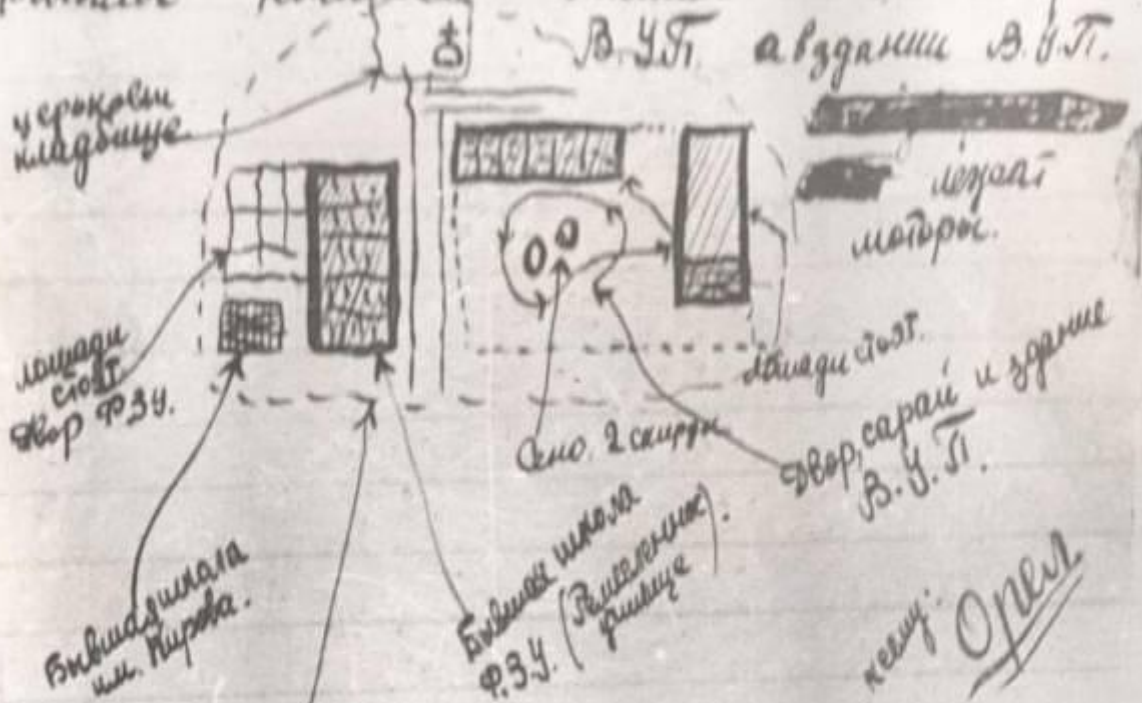 В.У.П. а в здании В.У.П.
церьковы
кладбище.
лежат
моторы.
лошади
стоят.
двор Ф.З.У.
лошади стоят.
Сено. 2 скирды
двор, сарай и здание
В.У.П.
Бывшая школа
им. Кирова.
Бывшая школа
Ф.З.У. (Ремесленник
училище).
Орел